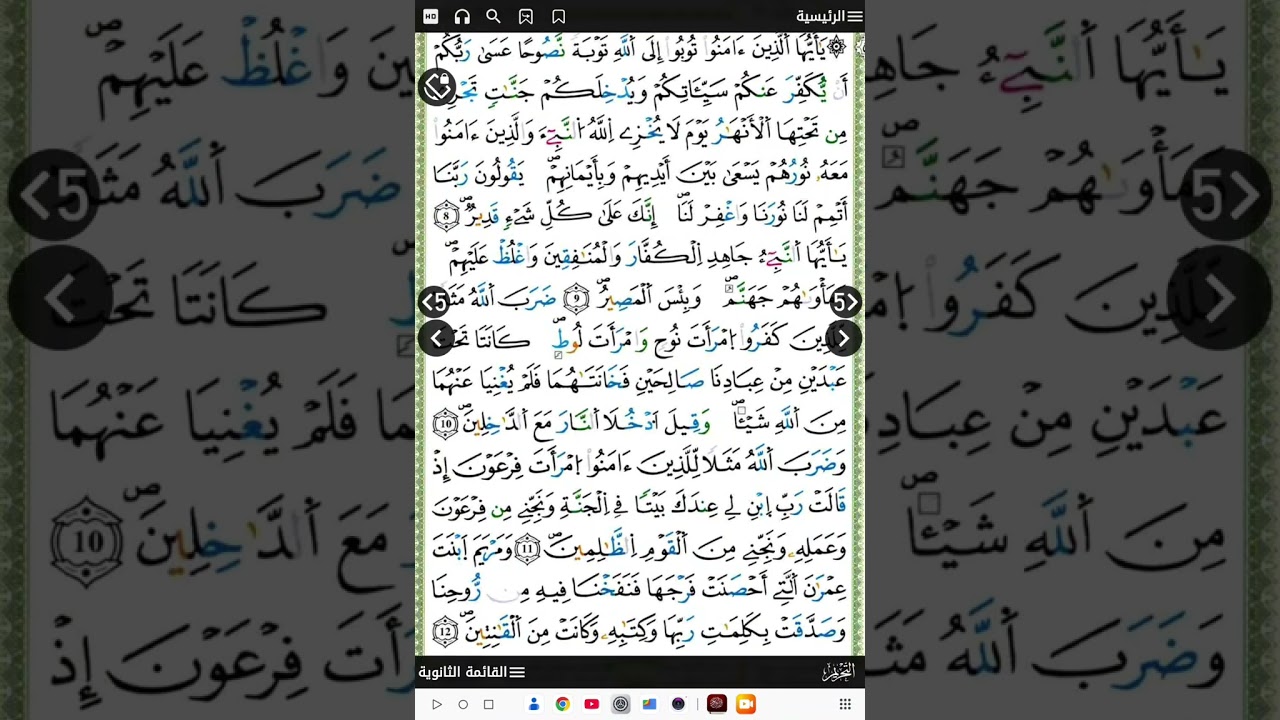 الرئيسية
يَٰأَيُّهَا اَ۬لذِينَ ءَامَنُواْ تُوبُواْ إِلَى اَ۬للَّهِ تَوْبَةٗ نَّصُوحًا عَسَىٰ رَبُّكُمْ
أَنْ يُّكَفِّرَ عَنكُمْ سَيِّـَٔاتِكُمْ وَيُدْخِلَكُمْ جَنَّٰتٖ تَجْرِے
مِن تَحْتِهَا اَ۬لْأَنْهَٰرُ يَوْمَ لَا يُخْزِے اِ۬للَّهُ اُ۬لنَّبِيٓءَ وَالذِينَ ءَامَنُواْ
مَعَهُۥ نُورُهُمْ يَسْعَىٰ بَيْنَ أَيْدِيهِمْ وَبِأَيْمَٰنِهِمْ يَقُولُونَ رَبَّنَا
أَتْمِمْ لَنَا نُورَنَا وَاغْفِرْ لَنَا إِنَّكَ عَلَىٰ كُلِّ شَےْءٖ قَدِيرٞ 8
يَٰأَيُّهَا اَ۬لنَّبِيٓءُ جَٰهِدِ اِ۬لْكُفَّارَ وَالْمُنَٰفِقِينَ وَاغْلُظْ عَلَيْهِمْ
وَمَأْوَىٰهُمْ جَهَنَّمُ وَبِئْسَ اَ۬لْمَصِيرُ 9 ضَرَبَ اَ۬للَّهُ مَثَلٗا
لِّلذِينَ كَفَرُواْ اُ۪مْرَأَتَ نُوحٖ وَامْرَأَتَ لُوطٖ كَانَتَا تَحْتَ
عَبْدَيْنِ مِنْ عِبَادِنَا صَٰلِحَيْنِ فَخَانَتَٰهُمَا فَلَمْ يُغْنِيَا عَنْهُمَا
مِنَ اَ۬للَّهِ شَيْـٔٗا وَقِيلَ اَ۟دْخُلَا اَ۬لنَّارَ مَعَ اَ۬لدَّٰخِلِينَ 10
وَضَرَبَ اَ۬للَّهُ مَثَلٗا لِّلذِينَ ءَامَنُواْ اُ۪مْرَأَتَ فِرْعَوْنَ إِذْ
قَالَتْ رَبِّ اِ۪بْنِ لِے عِندَكَ بَيْتٗا فِے اِ۬لْجَنَّةِ وَنَجِّنِے مِن فِرْعَوْنَ
وَعَمَلِهِۦ وَنَجِّنِے مِنَ اَ۬لْقَوْمِ اِ۬لظَّٰلِمِينَ 11 وَمَرْيَمَ اَ۪بْنَتَ
عِمْرَٰنَ اَ۬لتِے أَحْصَنَتْ فَرْجَهَا فَنَفَخْنَا فِيهِ مِن رُّوحِنَا
وَصَدَّقَتْ بِكَلِمَٰتِ رَبِّهَا وَكِتَٰبِهِۦ وَكَانَتْ مِنَ اَ۬لْقَٰنِتِينَ 12
5
5
القائمة الثانوية
التحريم